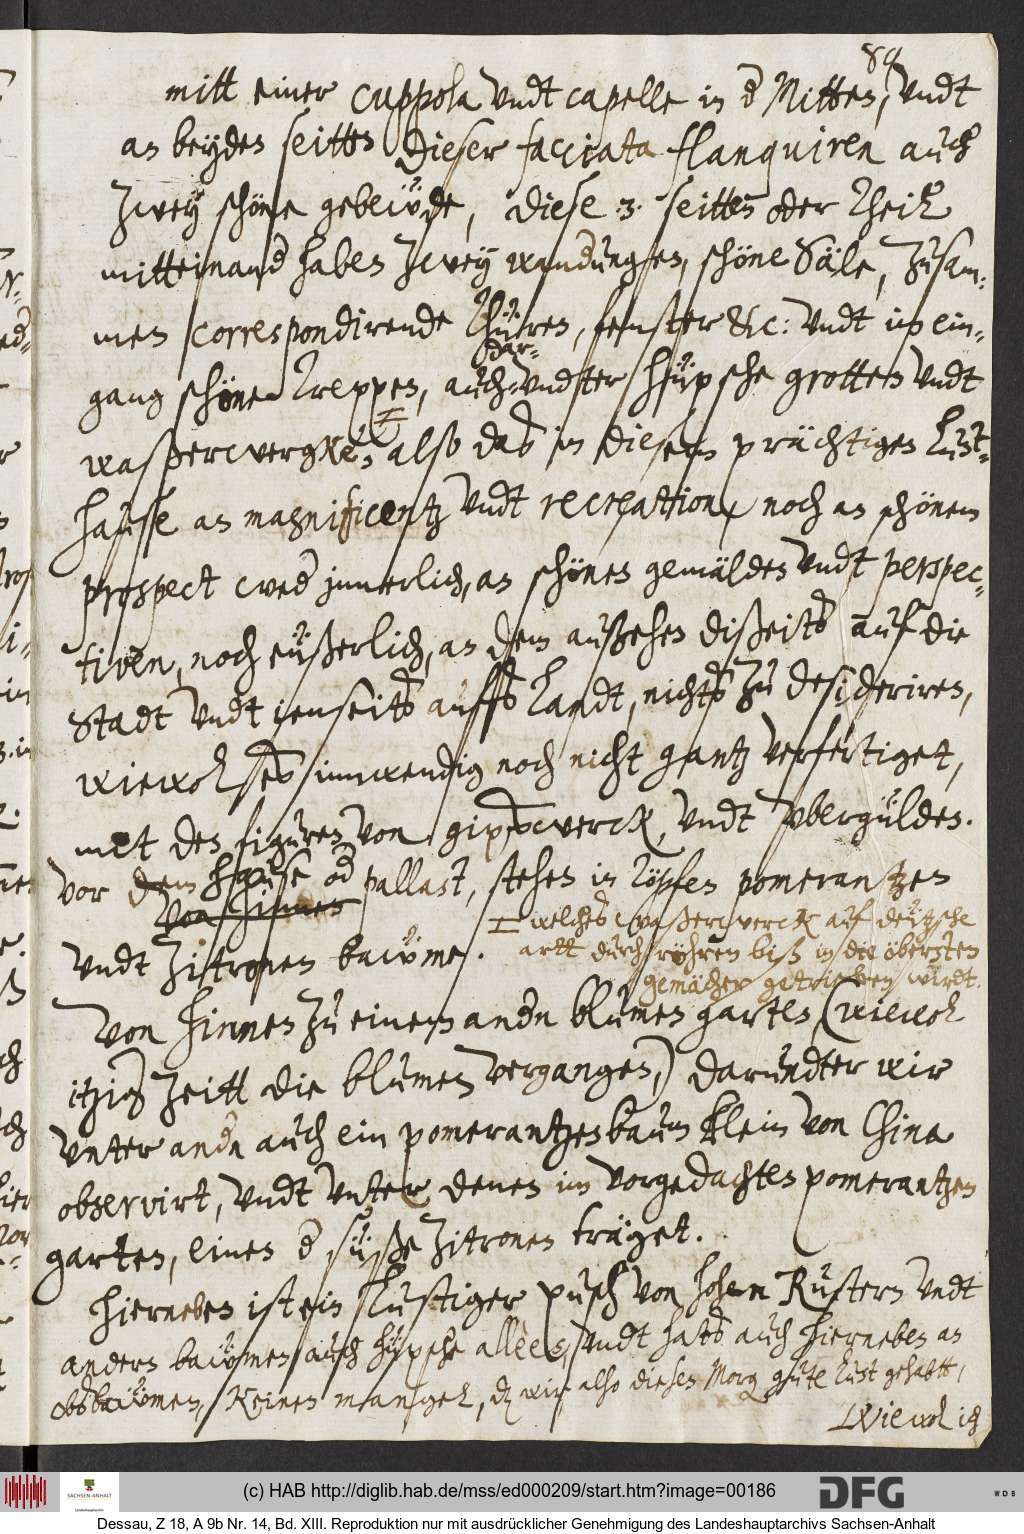 89
mitt einer cuppola vndt capelle in d Mitten, vndt
an beyden seitten dieser facciata flanquiren auch
zwey schöne gebeüde, diese 3. seitten oder theil
mitteinand haben zwey wandungen, schöne Säle, zusam-
men correspondirende thüren, fenster &c: vndt im ein-
gang schöne treppen, auch dar-vndter hüpsche grotten vndt
waßerwergke, also das in diesem prächtigen lust-
hause an magnificentz vndt recreation, noch an schönem
prospect wed innerlich, an schönen gemälden vndt perspec-
tiven, noch eüßerlich, an dem außsehen dißeits auf die
Stadt vndt ienseits aufs landt, nichts zu desideriren,
wiewol es innwendig noch nicht gantz verfertiget,
mit den figuren von gipswerck, vndt vbergülden.
vor dem hause od pallast, stehen in töpfen pomerantzen
Von hinnen
vndt Zitronen baüme.
welches waßerwerck auf deützsche
artt durch röhren biß in die öbersten
gemächer getrieben wirdt.
Von hinnen zu einem andn blumen garten, (wiewol
itzig Zeitt die blumen vergangen,) darundter wir
vnter andn auch ein pomerantzenbaum klein von China
observirt, vndt vnter denen im vorgedachten pomerantzen
garten, einen d süße Zitronen träget.
hierneben ist ein lustiger pusch von hohen Rüstern vndt
andern baümen, auch hüpsche allèes, vndt hats auch hierneben an
obsbaümen, keinen mangel, dz wir also diesen Morg gute lust gehabtt,
Wiewol ich
(c) HAB http://diglib.hab.de/mss/ed000209/start.htm?image=00186
SACHSEN-ANHALT
Landeshauptarchiv
DFG
WDB
Dessau, Z 18, A 9b Nr. 14, Bd. XIII. Reproduktion nur mit ausdrücklicher Genehmigung des Landeshauptarchivs Sachsen-Anhalt